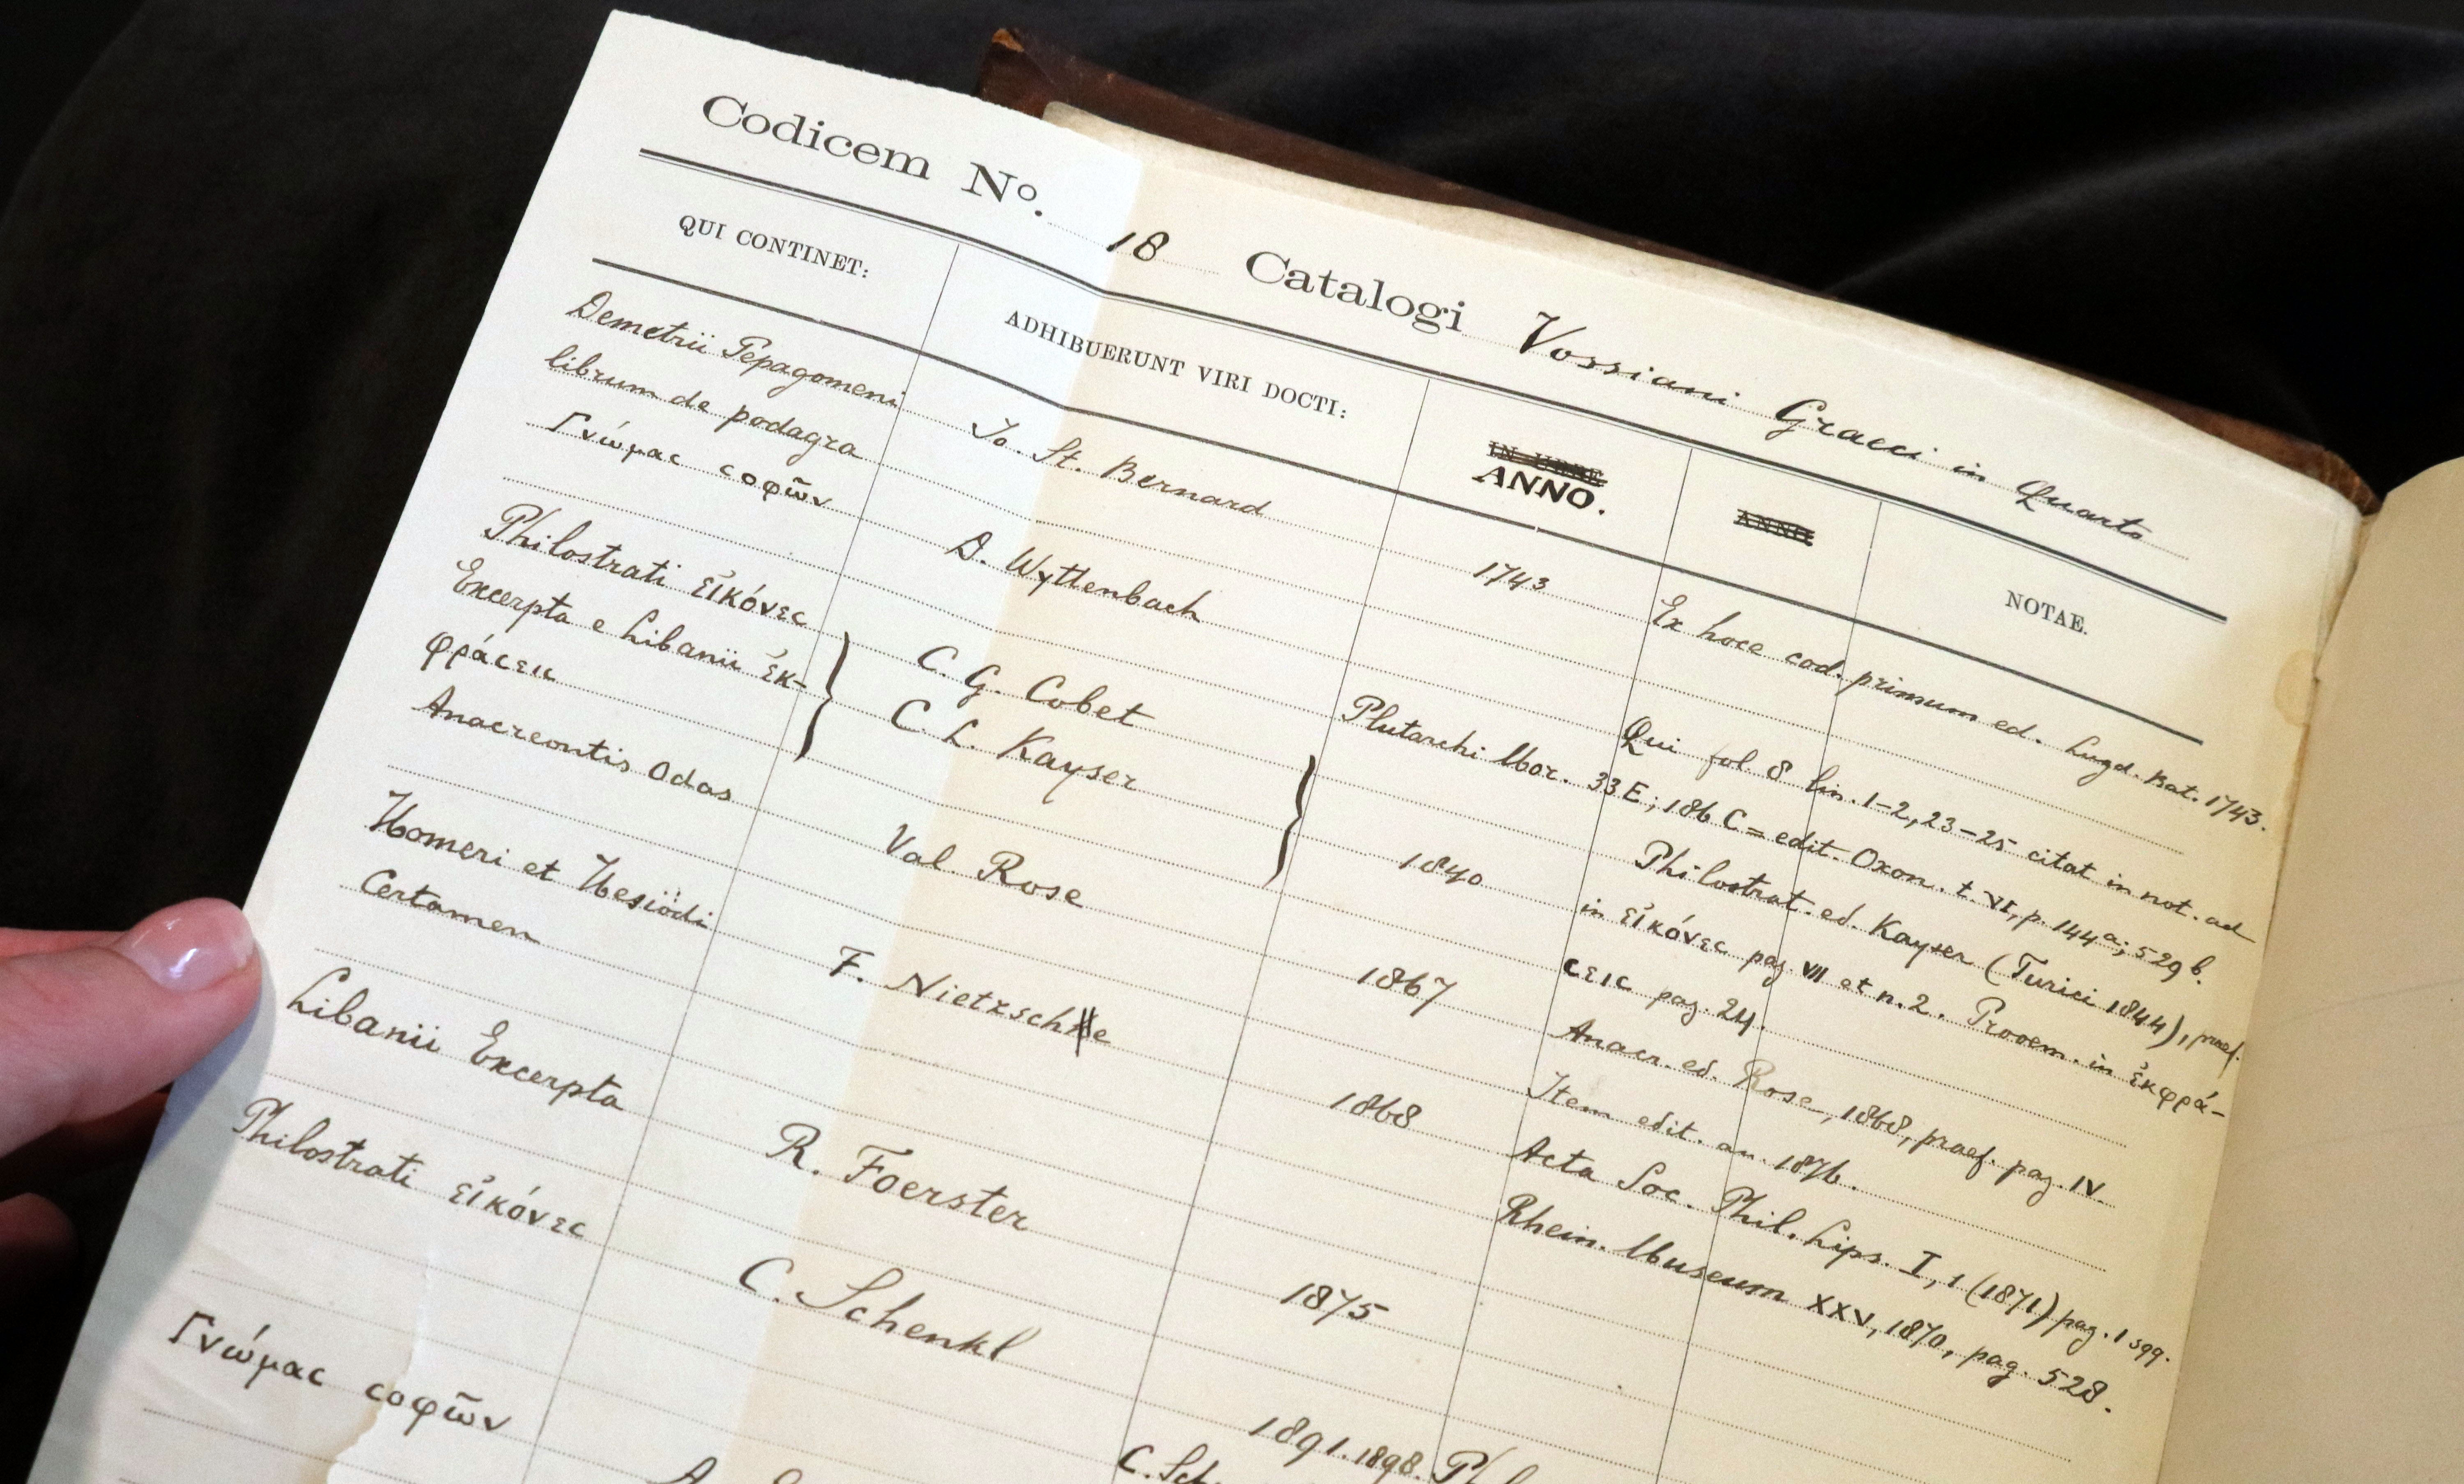 Codicem No. 18 Catalogi Vossiani Graeci in Quarto
QUI CONTINET:
ADHIBUERUNT VIRI DOCTI:
IN URBE
ANNO.
ANNO
NOTAE.
Demetrii Pepagomeni
librum de podagra
Jo. St. Bernard
1743
Ex hoce cod. primum ed. Lugd. Bat. 1743.
Γνώμας σοφῶν
D. Wyttenbach
Qui fol. 8 lin. 1-2, 23-25 citat in not. ad
Plutarchi Mor. 33 E; 186 C = edit. Oxon. t. VI, p. 144 a; 529 b.
Philostrati εἰκόνες
Excerpta e Libanii ἐκ-
φράσεις
C. G. Cobet
C. L. Kayser
1840
Philostrat. ed. Kayser (Turici 1844), praef.
in εἰκόνες pag. VII et n. 2. Prooem. in ἐκφρά-
σεις pag. 24.
Anacreontis Odas
Val. Rose
1867
Anacr. ed. Rose, 1868, praef. pag. IV.
Item edit. an. 1876.
Homeri et Hesiödi
Certamen
F. Nietzsche
1868
Acta Soc. Phil. Lips. I, 1 (1871) pag. 1 sqq.
Rhein. Museum XXV, 1870, pag. 528.
Libanii Excerpta
R. Foerster
1875
Philostrati εἰκόνες
C. Schenkl
1891. 1898.
Γνώμας σοφῶν